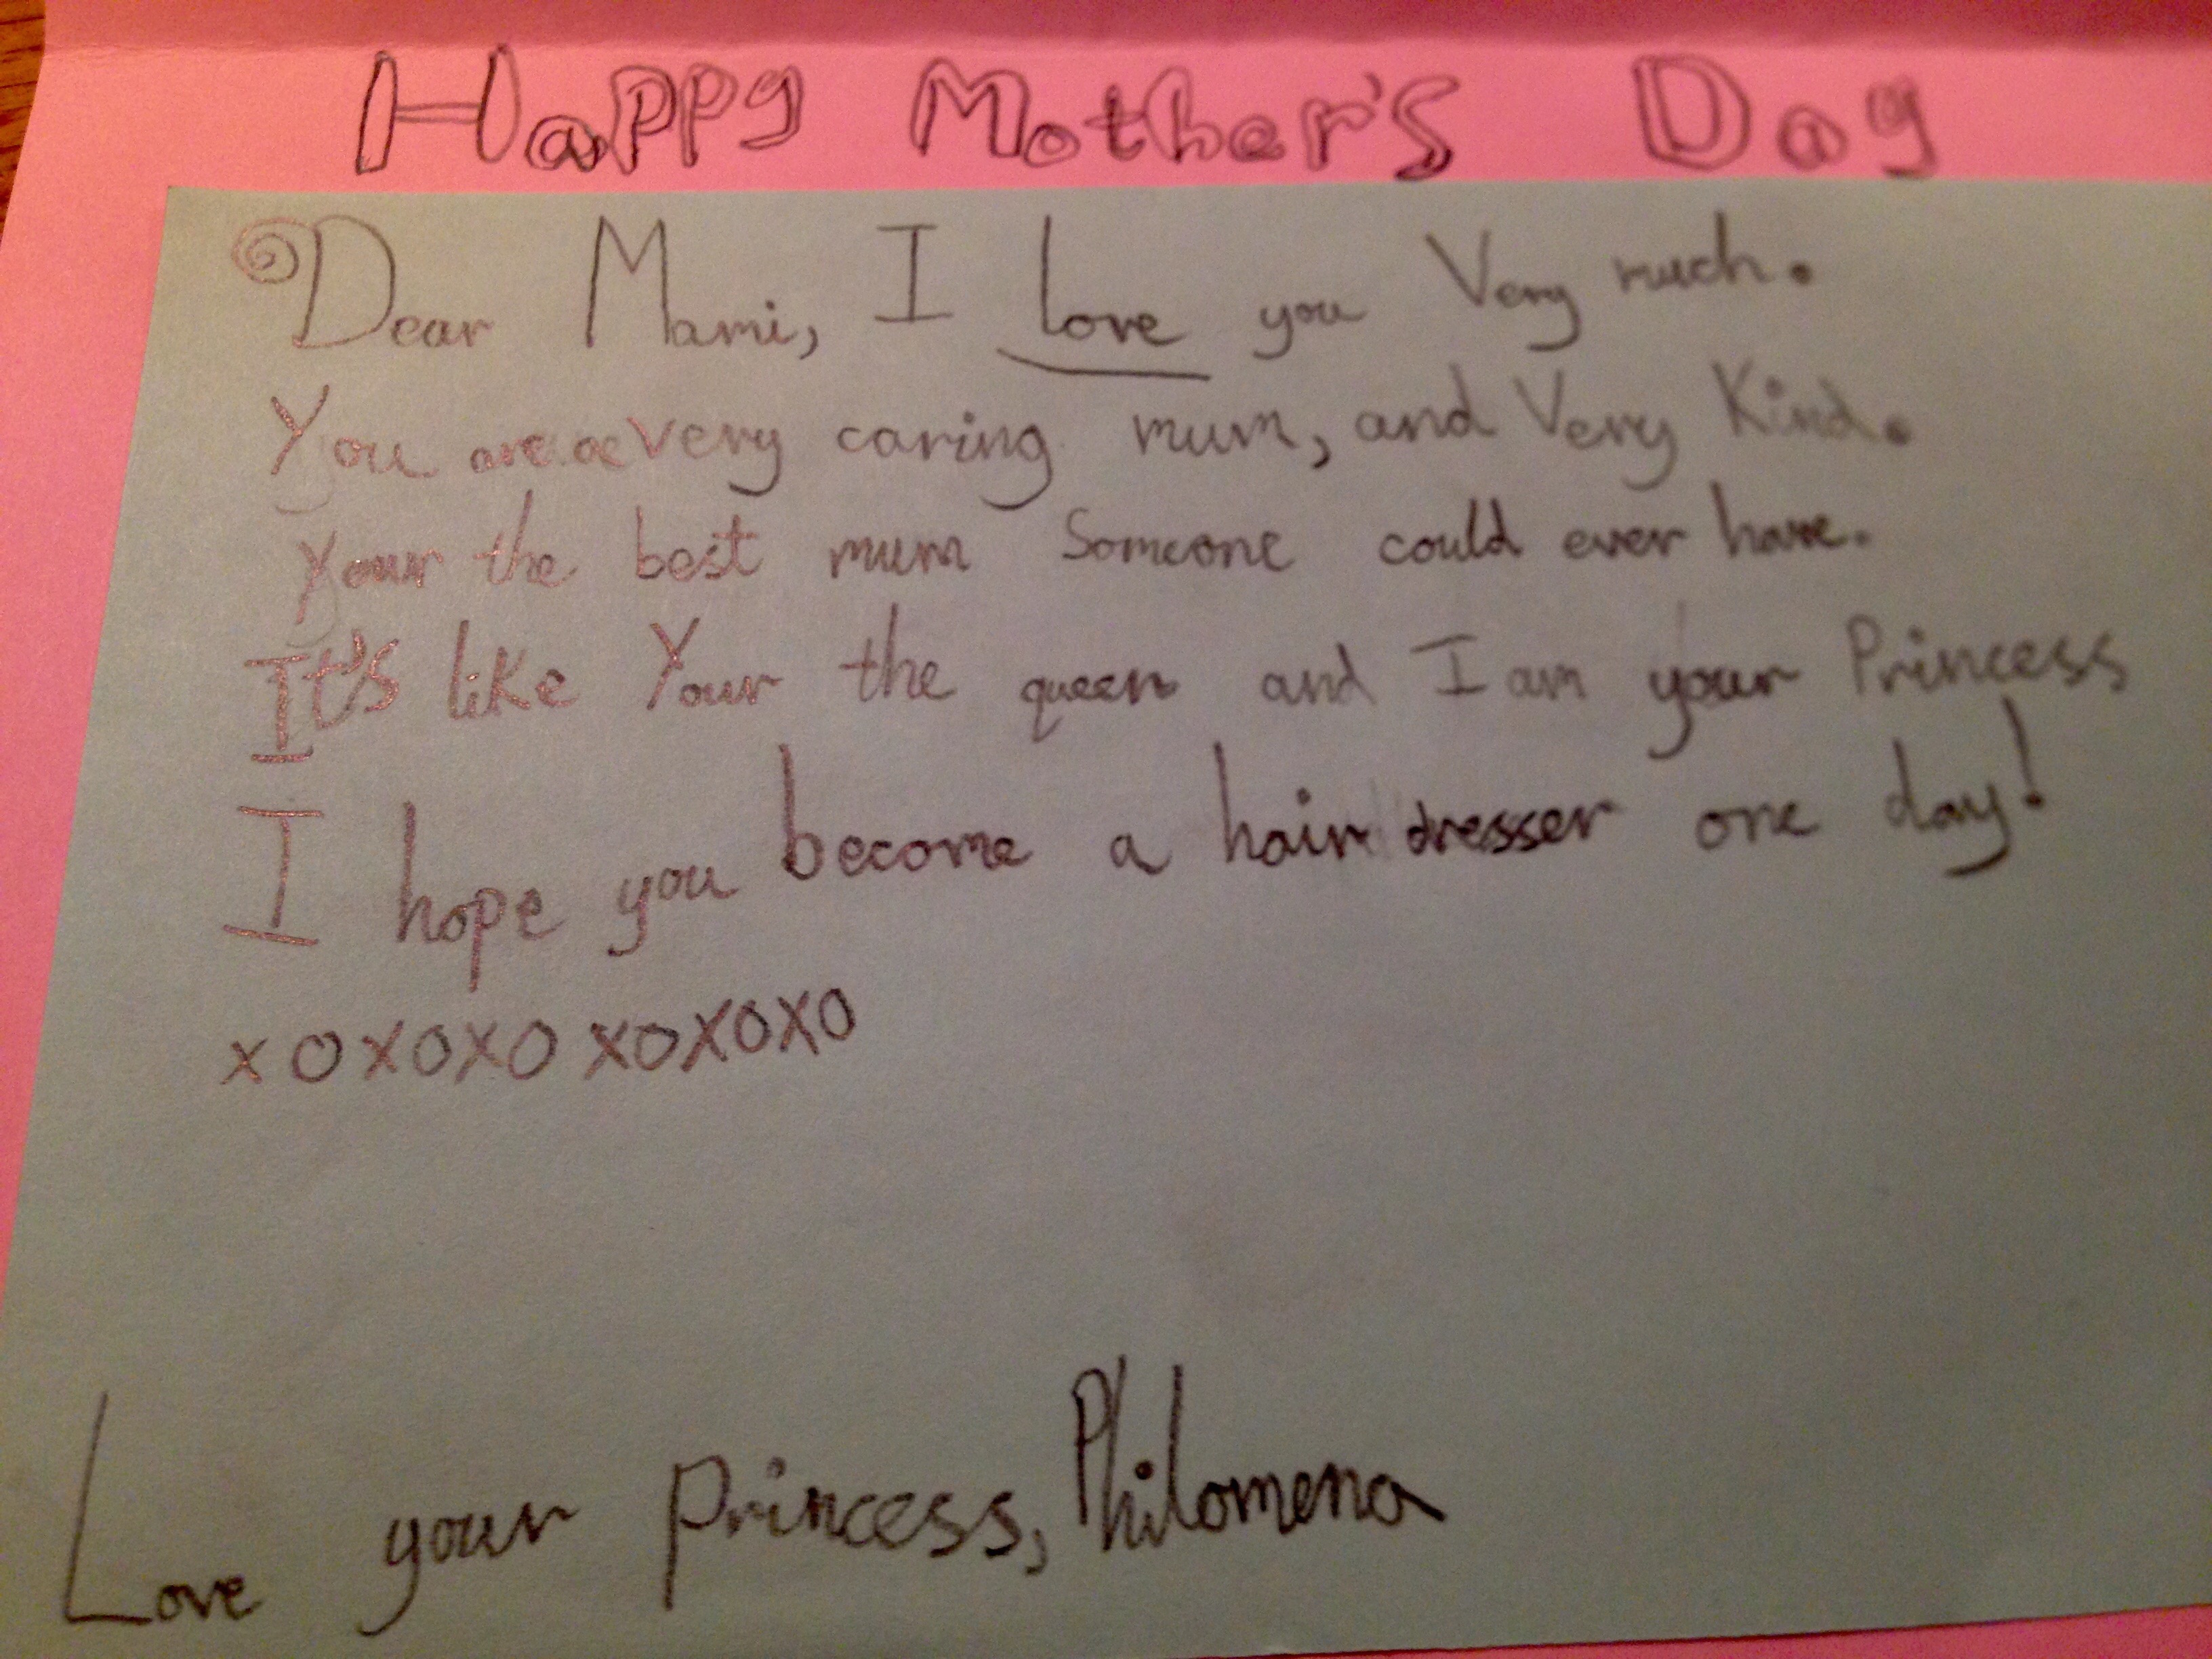 Happy Mother's Day
Dear Mami, I love you Very much.
You are a very caring mum, and Very Kind.
Your the best mum Someone could ever have.
It's like Your the queen and I am your Princess
I hope you become a hair dresser one day!
xoxoxo xoxoxo
Love your princess, Philomena